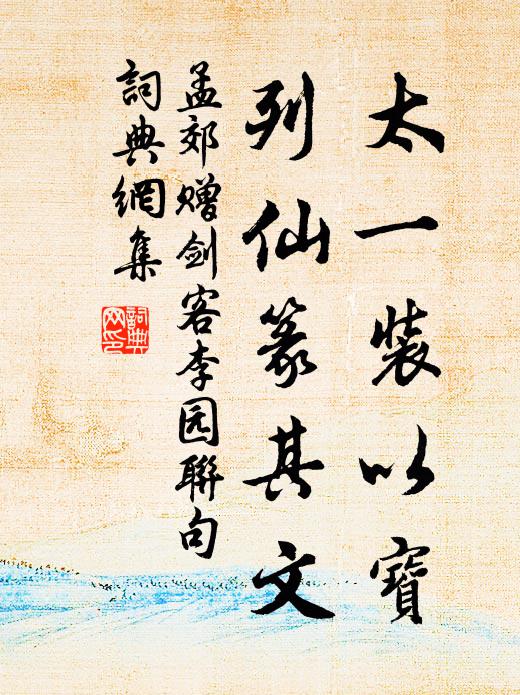 太一裝以寶
列仙篆其文
孟郊赠剑客李园聯句
詞典網集
詞典網印